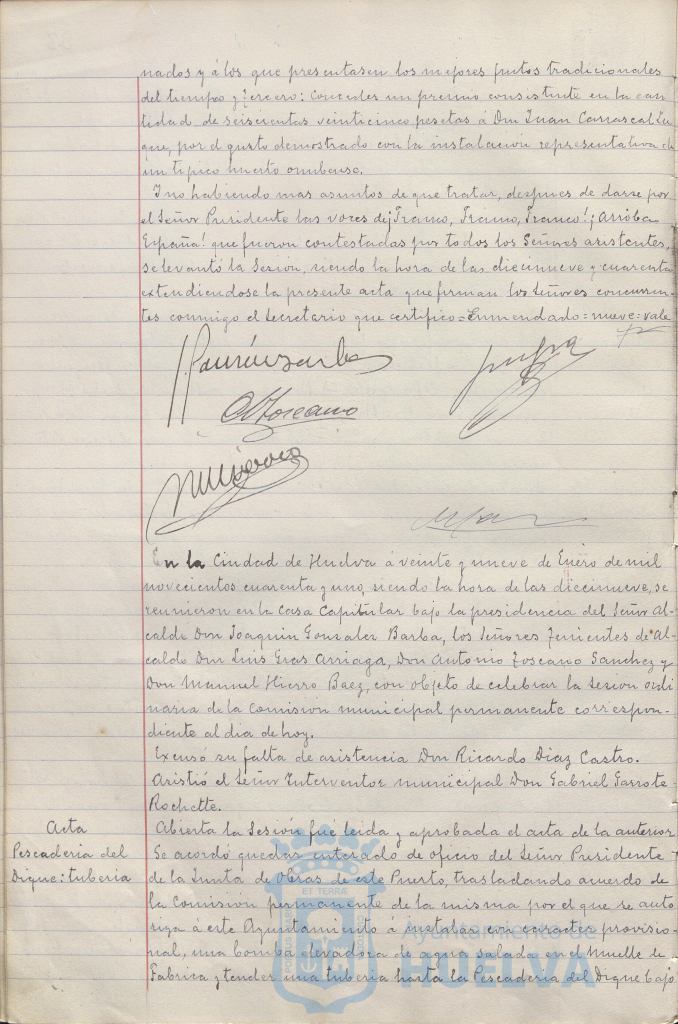 nados y á los que presentasen los mejores frutos tradicionales
del tiempo y tercero: Conceder un premio consistente en la can
tidad de seiscientas veinticinco pesetas á Don Juan Carrascal
que, por el gusto demostrado con la instalacion representativa de
un tipico huerto onubense.
Y no habiendo mas asuntos de que tratar, despues de darse por
el Señor Presidente las voces de ¡Franco, Franco, Franco! ¡Arriba
España! que fueron contestadas por todos los Señores asistentes,
se levantó la Sesion, siendo la hora de las diecinueve y cuarenta
extendiendose la presente acta que firman los Señores concurren
tes conmigo el Secretario que certifico = Enmendado = nueve = vale
En la Ciudad de Huelva á veinte y nueve de Enero de mil
novecientos cuarenta y uno, siendo la hora de las diecinueve, se
reunieron en la Casa Capitular bajo la presidencia del Señor Al-
calde Don Joaquin Gonzalez Barba, los Señores Tenientes de Al-
calde Don Luis Gras Arriaga, Don Antonio Toscano Sanchez y
Don Manuel Hierro Baez, con objeto de celebrar la Sesion ordi
naria de la Comisión municipal permanente correspon-
diente al dia de hoy.
Excusó su falta de asistencia Don Ricardo Diaz Castro.
Asistió el Señor Interventor municipal Don Gabriel Garrote
Rochette.
Acta
Abierta la Sesión fue leida y aprobada el acta de la anterior
Pescaderia del
Dique: tuberia
Se acordó quedar enterado de oficio del Señor Presidente
de la Junta de Obras de este Puerto, trasladando acuerdo de
la Comisión permanente de la misma por el que se auto
riza á este Ayuntamiento á instalar con caracter provisio-
nal, una bomba elevadora de agua salada en el Muelle de
Fabrica y tender una tuberia hasta la Pescaderia del Dique bajo
Ayuntamiento de
HUELVA